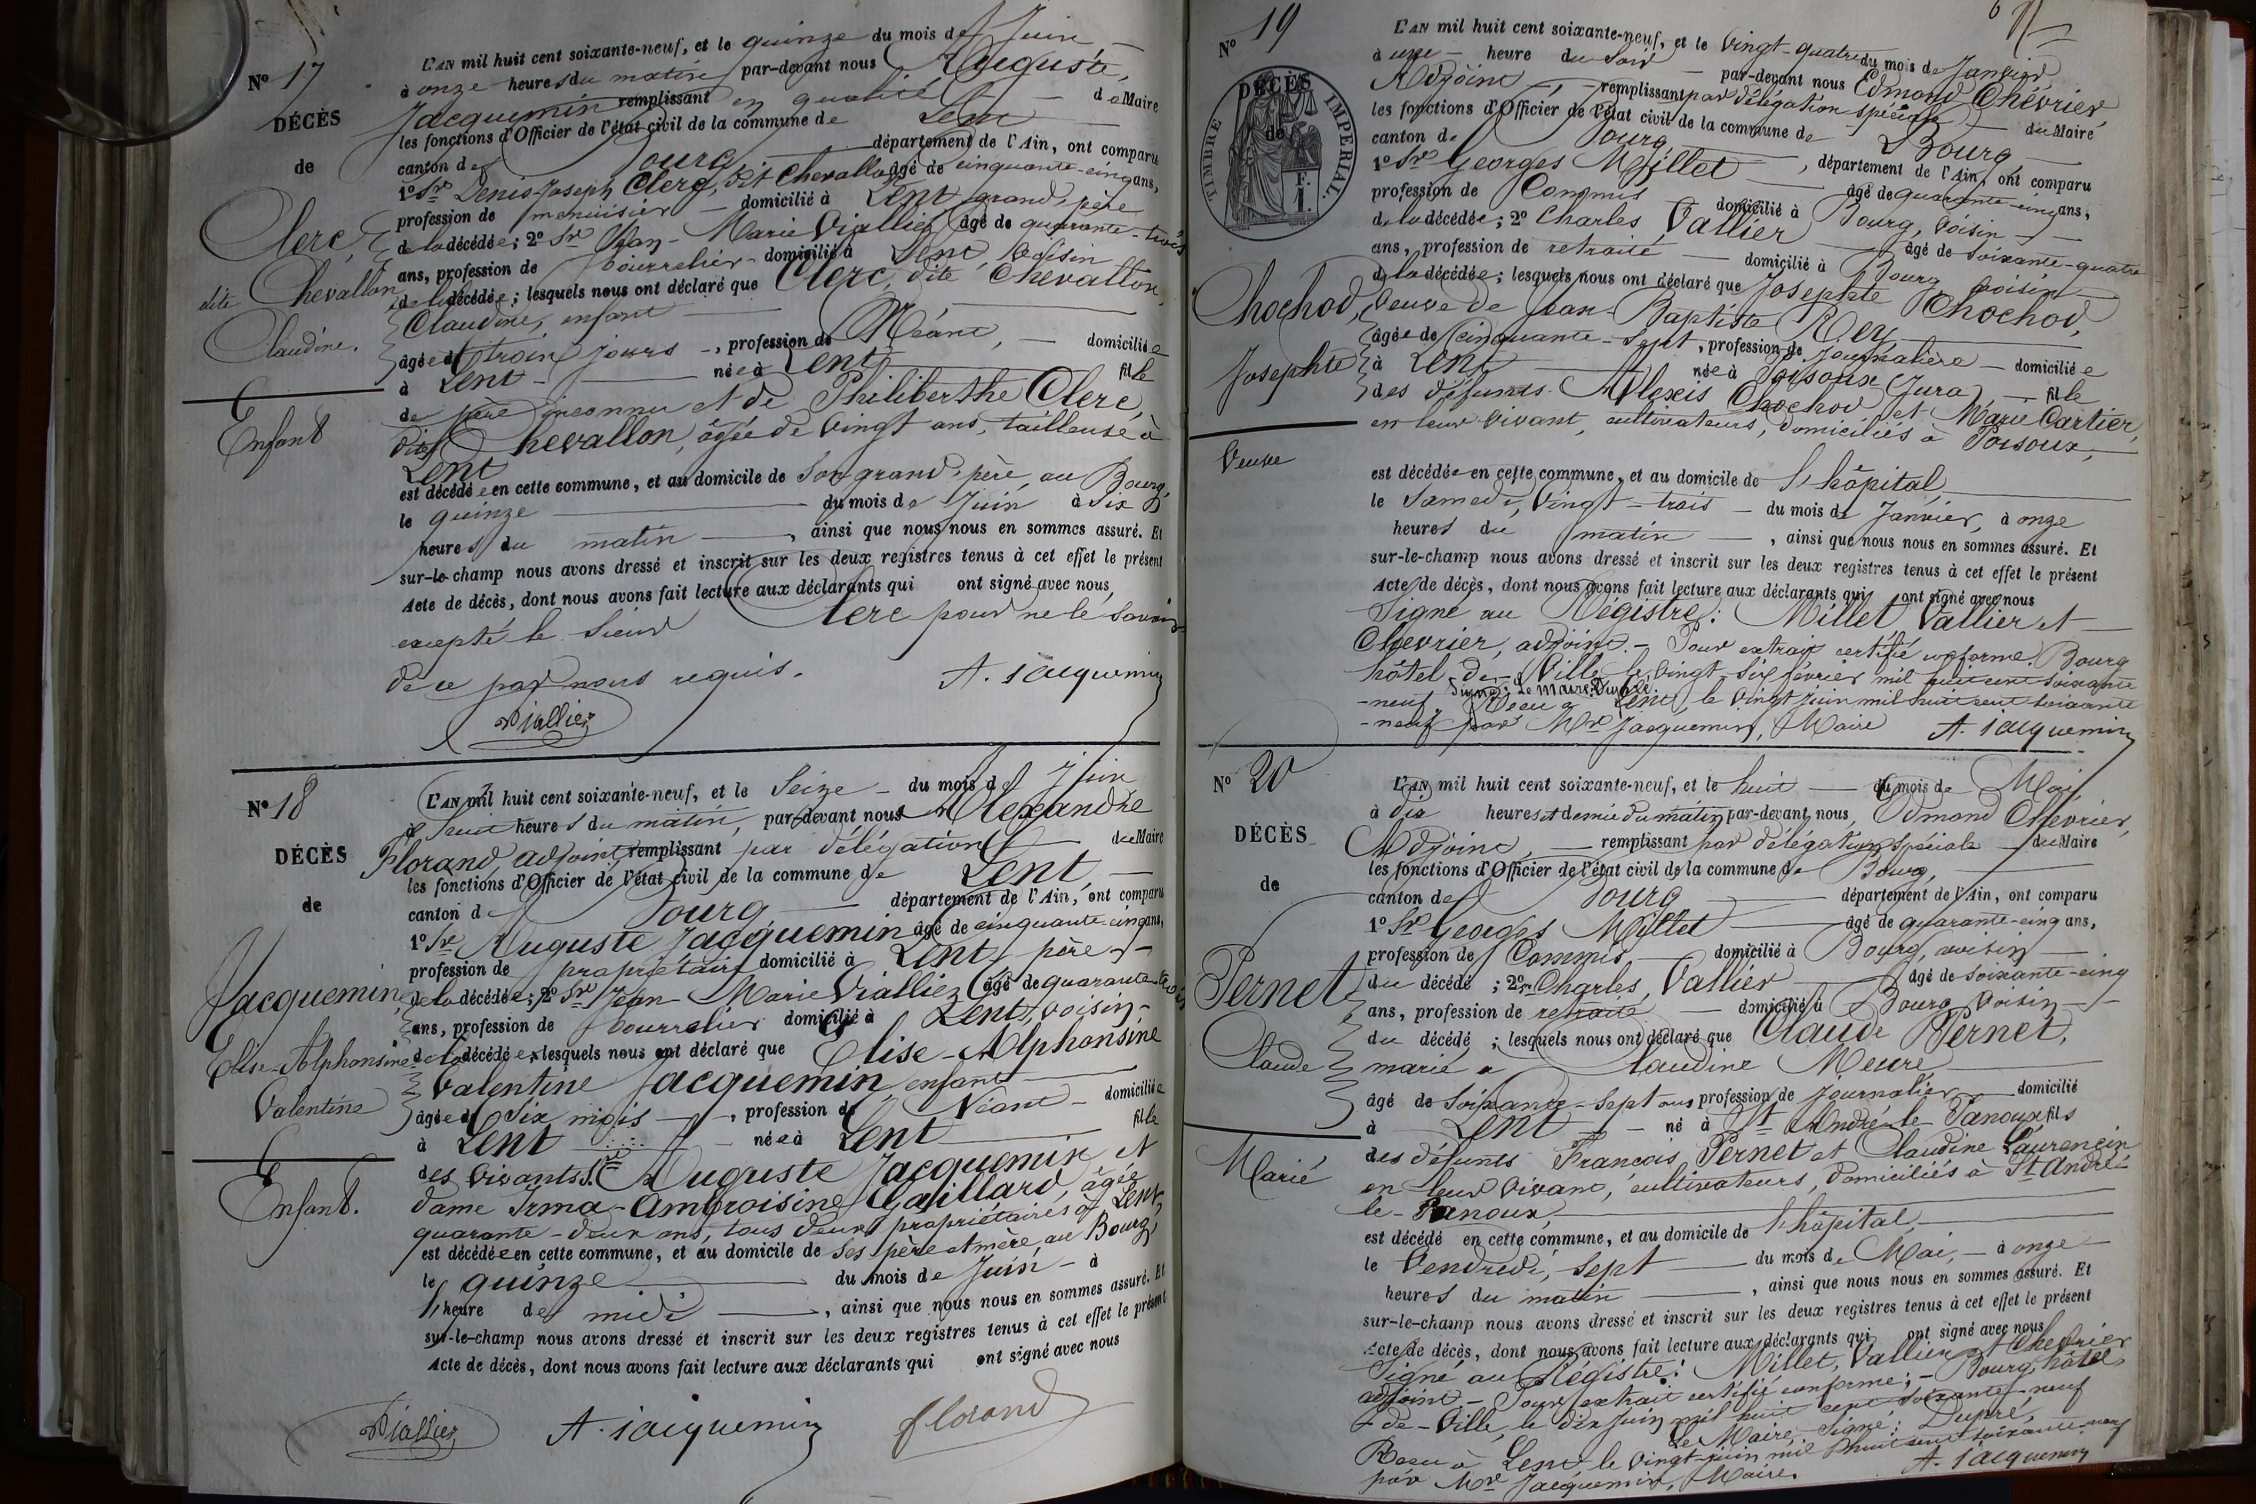 N° 17
DÉCÈS
de
Clerc,
dite Chevallon
Claudine.
Enfant
L'AN mil huit cent soixante-neuf, et le quinze du mois de Juin
à onze heures du matin par-devant nous Auguste
Jacquemin remplissant en qualité de Maire
les fonctions d'Officier de l'état civil de la commune de Lent
canton de Bourg département de l'Ain, ont comparu
1° Sr Denis Joseph Clerc, dit Chevallon âgé de cinquante-cinq ans,
profession de menuisier domicilié à Lent, grand-père
de la décédée; 2° Sr Jean-Marie Viallier âgé de quarante-trois
ans, profession de bourrelier domicilié à Lent, voisin
de la décédée; lesquels nous ont déclaré que Clerc, dite Chevallon
Claudine, enfant
âgée de trois jours, profession de Néant, domiciliée
à Lent née à Lent fille
de père inconnu et de Philiberthe Clerc,
dite Chevallon, âgée de vingt ans, tailleuse à
Lent
est décédée en cette commune, et au domicile de son grand-père, au Bourg,
le quinze du mois de Juin à six
heures du matin, ainsi que nous nous en sommes assuré. Et
sur-le-champ nous avons dressé et inscrit sur les deux registres tenus à cet effet le présent
Acte de décès, dont nous avons fait lecture aux déclarants qui ont signé avec nous,
excepté le sieur Clerc pour ne le savoir
de ce par nous requis.
A. Jacquemin
Viallier
N° 18
DÉCÈS
de
Jacquemin,
Elise-Alphonsine
Valentine
Enfant.
L'AN mil huit cent soixante-neuf, et le Seize du mois de Juin
à huit heures du matin, par-devant nous Alexandre
Florand, adjoint remplissant par délégation du Maire
les fonctions d'Officier de l'état civil de la commune de Lent,
canton de Bourg département de l'Ain, ont comparu
1° Sr Auguste Jacquemin âgé de cinquante-cinq ans,
profession de propriétaire domicilié à Lent, père
de la décédée; 2° Sr Jean-Marie Viallier âgé de quarante-trois
ans, profession de bourrelier domicilié à Lent, voisin
de la décédée lesquels nous ont déclaré que Elise-Alphonsine
Valentine Jacquemin, enfant
âgée de six mois, profession de Néant domiciliée
à Lent née à Lent fille
des vivants Sr Auguste Jacquemin et
dame Irma-Ambroisine Gaillard, âgée
quarante-deux ans, tous deux propriétaires à Lent,
est décédée en cette commune, et au domicile de ses père et mère, au Bourg,
le quinze du mois de Juin à
l'heure de midi, ainsi que nous nous en sommes assuré. Et
sur-le-champ nous avons dressé et inscrit sur les deux registres tenus à cet effet le présent
Acte de décès, dont nous avons fait lecture aux déclarants qui ont signé avec nous
Viallier A. Jacquemin Florand
N° 19
DÉCÈS
de
TIMBRE IMPERIAL.
Chochod,
Josephte
Veuve
L'AN mil huit cent soixante-neuf, et le vingt-quatre du mois de Janvier
à une heure du soir par-devant nous Edmond Chevrier,
Adjoint, remplissant par délégation spéciale du Maire
les fonctions d'Officier de l'état civil de la commune de Bourg
canton de Bourg, département de l'Ain, ont comparu
1° Sr Georges Millet âgé de quarante-cinq ans,
profession de Commis domicilié à Bourg, voisin
de la décédée; 2° Charles Vallier âgé de soixante-quatre
ans, profession de retraité domicilié à Bourg, voisin
de la décédée; lesquels nous ont déclaré que Josephte Chochod,
veuve de Jean-Baptiste Rey
âgée de cinquante-sept, profession de journalière domiciliée
à Lent née à Poisoux (Jura) fille
des défunts Alexis Chochod et Marie Cartier,
en leur vivant, cultivateurs, domiciliés à Poisoux,
est décédée en cette commune, et au domicile de l'hôpital,
le Samedi, vingt-trois du mois de Janvier, à onze
heures du matin, ainsi que nous nous en sommes assuré. Et
sur-le-champ nous avons dressé et inscrit sur les deux registres tenus à cet effet le présent
Acte de décès, dont nous avons fait lecture aux déclarants qui ont signé avec nous
Signé au Régistre: Millet, Vallier et
Chevrier, adjoint. - Pour extrait certifié conforme. Bourg
hôtel-de-Ville, le vingt-six février mil huit cent soixante
-neuf. Signé: Le Maire, Dupré.
Reçu à Lent le vingt Juin mil huit cent soixante
-neuf par Mr Jacquemin, Maire A. Jacquemin
N° 20
DÉCÈS
de
Pernet
Claude
Marié
L'AN mil huit cent soixante-neuf, et le huit du mois de Mai,
à dix heures et demie du matin par-devant nous Edmond Chevrier,
Adjoint, remplissant par délégation spéciale du Maire
les fonctions d'Officier de l'état civil de la commune de Bourg,
canton de Bourg département de l'Ain, ont comparu
1° Sr Georges Millet âgé de quarante-cinq ans,
profession de Commis, domicilié à Bourg, voisin
du décédé; 2° Charles Vallier âgé de soixante-cinq
ans, profession de retraité domicilié à Bourg, voisin
du décédé; lesquels nous ont déclaré que Claude Pernet,
marié à Claudine Meure
âgé de soixante-sept ans profession de journalier domicilié
à Lent né à St André-le-Panoux fils
des défunts François Pernet et Claudine Laurencin
en leur vivant, cultivateurs, domiciliés à St André-
le-Panoux,
est décédé en cette commune, et au domicile de l'hôpital,
le Vendredi, sept du mois de Mai, à onze
heures du matin, ainsi que nous nous en sommes assuré. Et
sur-le-champ nous avons dressé et inscrit sur les deux registres tenus à cet effet le présent
Acte de décès, dont nous avons fait lecture aux déclarants qui ont signé avec nous
Signé au Régistre: Millet, Vallier et Chevrier
adjoint - Pour extrait certifié conforme; - Bourg, hôtel-
de-Ville, le dix Juin mil huit cent soixante-neuf
Le Maire, Signé: Dupré,
Reçu à Lent le vingt-juin mil huit cent soixante-neuf
par Mr Jacquemin, Maire. A. Jacquemin